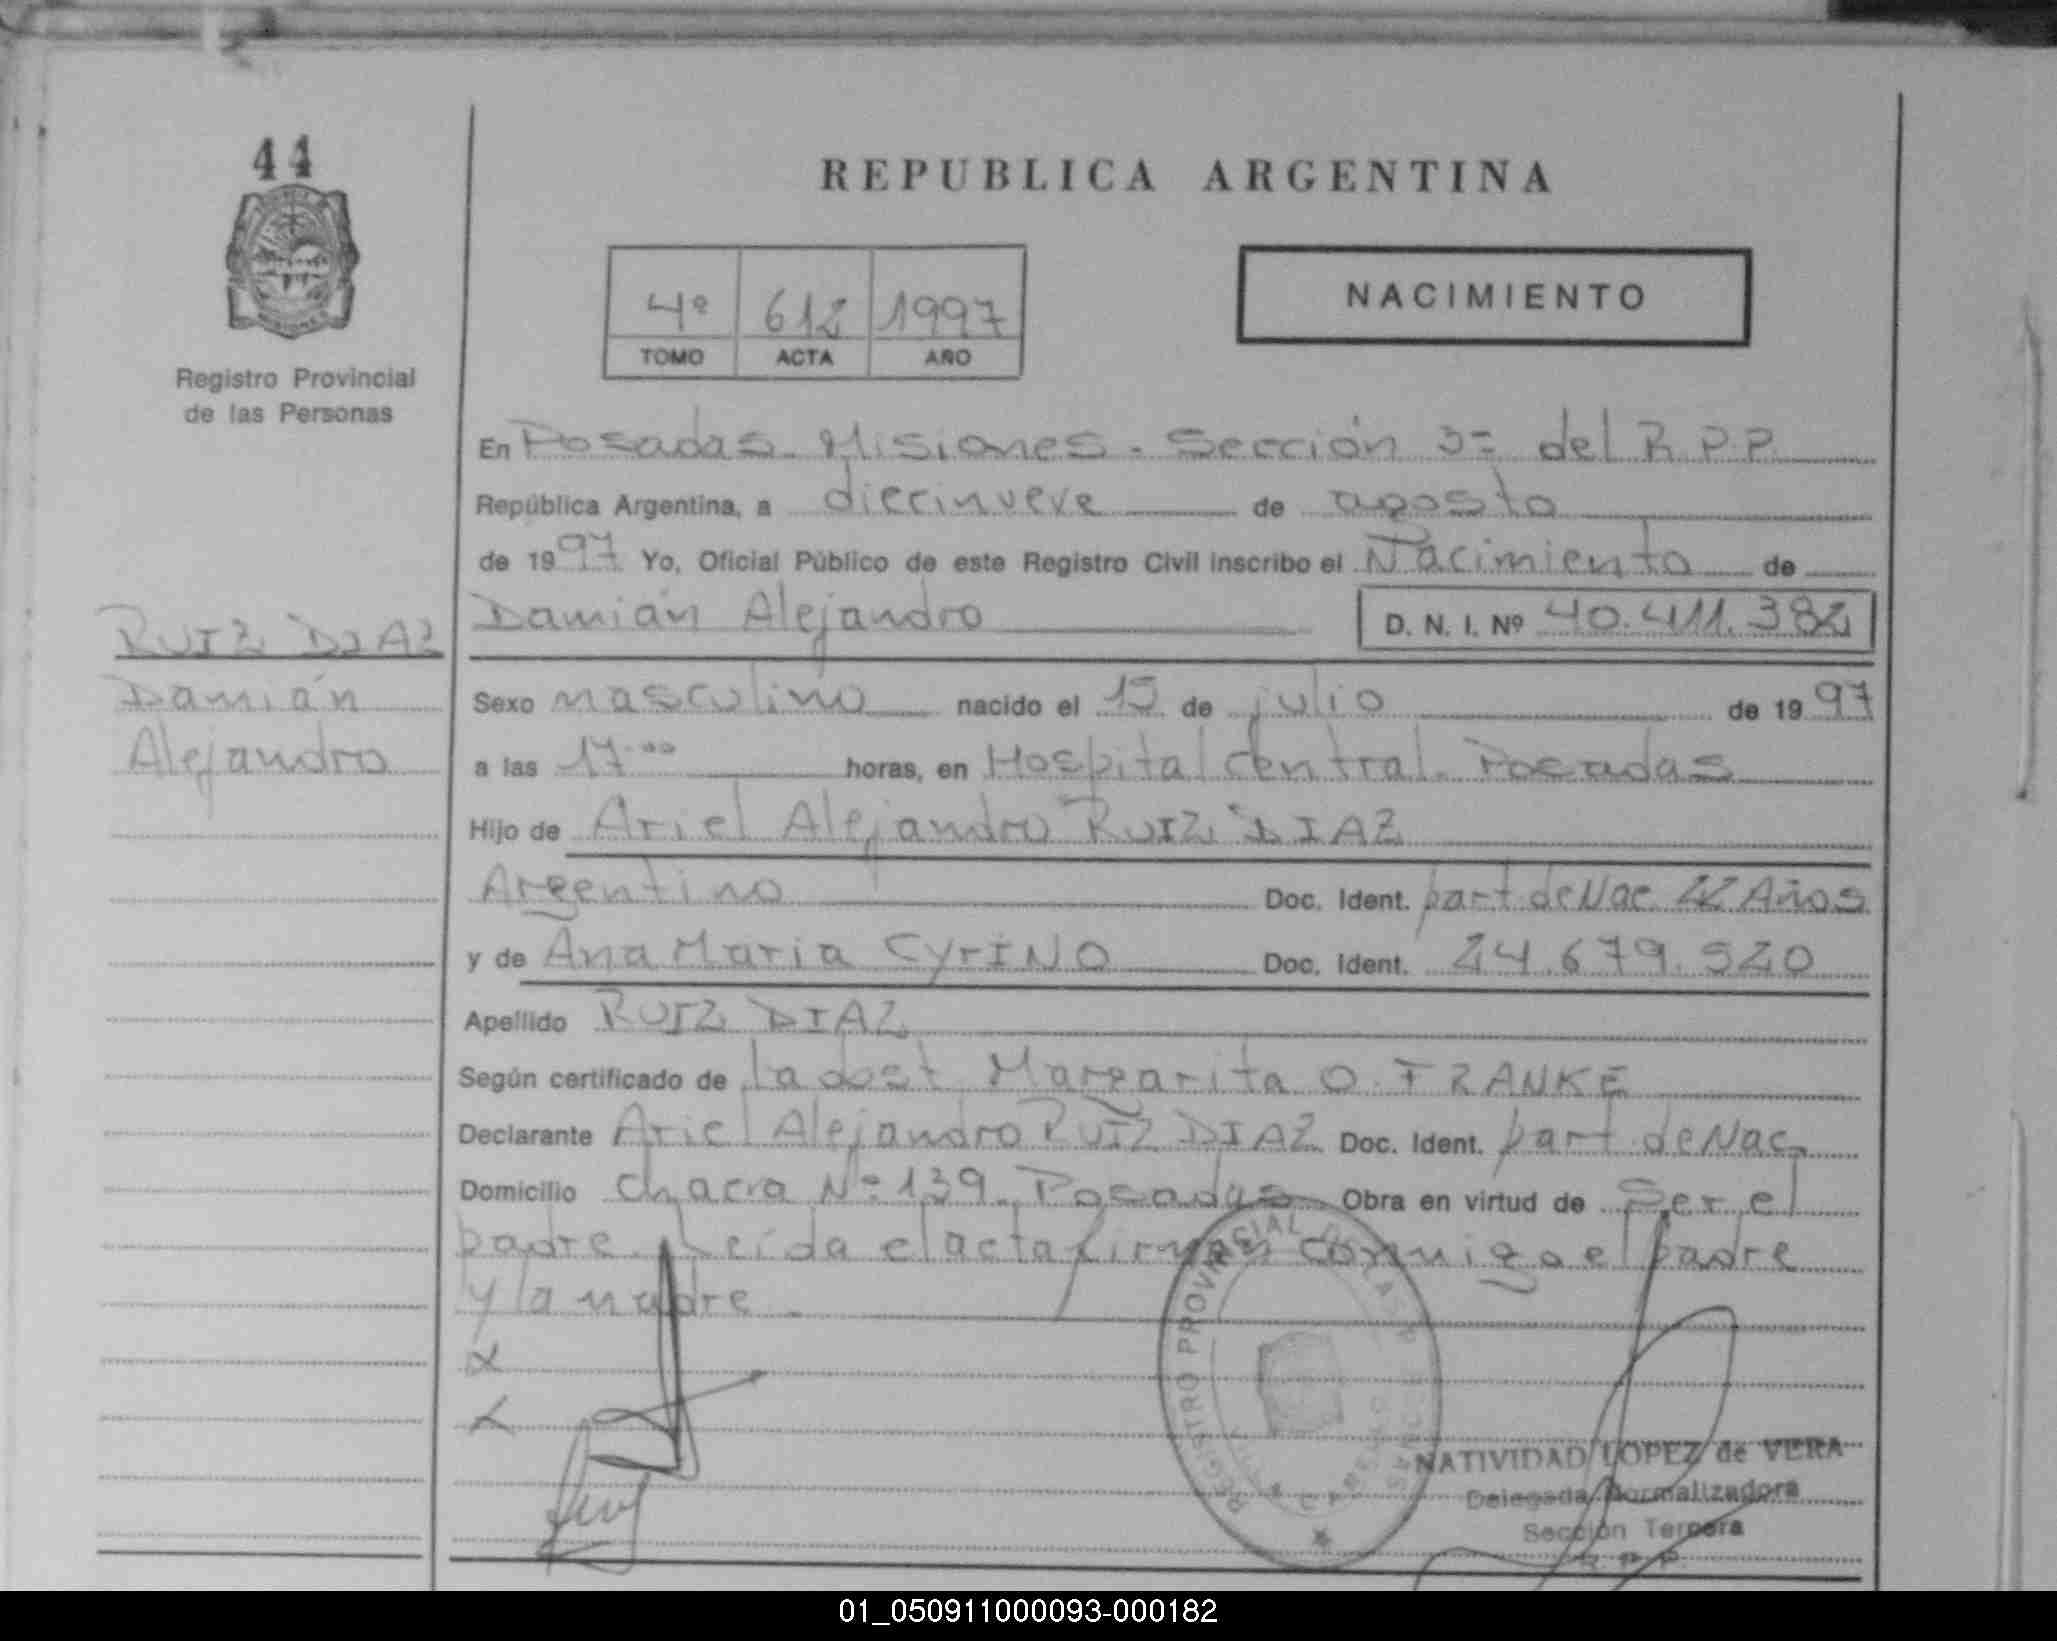 44
REPUBLICA ARGENTINA
4º 612 1997
TOMO ACTA AÑO
NACIMIENTO
MISIONES
Registro Provincial
de las Personas
En Posadas - Misiones - Sección 3ª del R.P.P.
República Argentina, a diecinueve de agosto
de 1997 Yo, Oficial Público de este Registro Civil inscribo el Nacimiento de
Damián Alejandro D. N. I. Nº 40.411.382
RUIZ DIAZ
Damián
Alejandro
Sexo masculino nacido el 15 de julio de 1997
a las 17.00 horas, en Hospital Central. Posadas
Hijo de Ariel Alejandro RUIZ DIAZ
Argentino Doc. Ident. part de Nac. 22 Años
y de Ana Maria CyrINO Doc. Ident. 24.679.520
Apellido RUIZ DIAZ
Según certificado de la obst. Margarita O. FRANKE
Declarante Ariel Alejandro RUIZ DIAZ Doc. Ident. part de Nac.
Domicilio Chacra Nº 139. Posadas Obra en virtud de Ser el
padre. Leída el acta firman conmigo el padre
y la madre.
REGISTRO PROVINCIAL DE LAS
NATIVIDAD LOPEZ de VERA
Delegada Normalizadora
Sección Tercera
R.P.P.
01_050911000093-000182